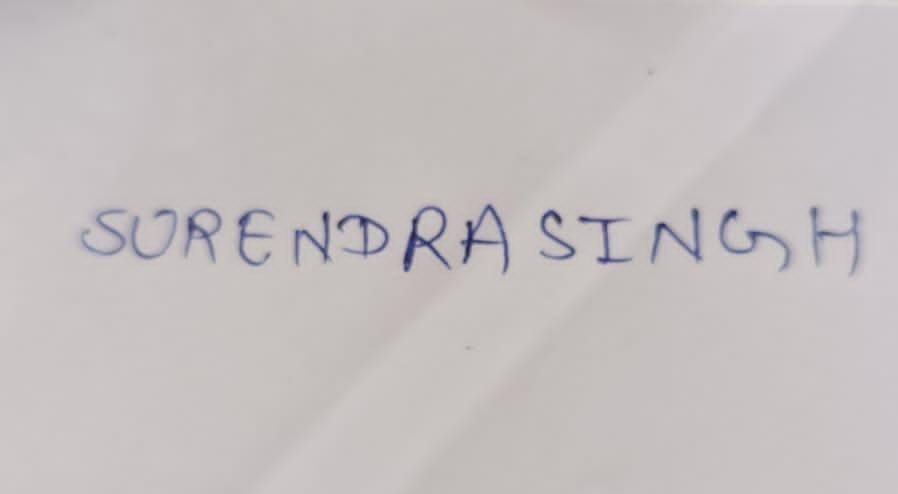 SURENDRA SINGH